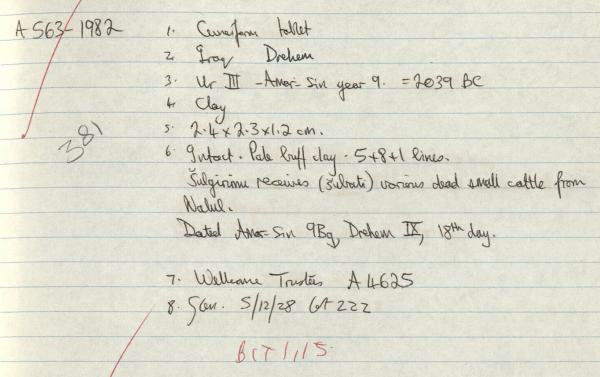 A 563-1982
1. Cuneiform tablet
2. Iraq Drehem
3. Ur III - Amar-Sin year 9. = 2039 BC
4. Clay
5. 2.4 x 2.3 x 1.2 cm.
381
6. Intact. Pale buff clay. 5+8+1 lines.
Šulgirimu receives (šubati) various dead small cattle from
Nalul.
Dated Amar-Sin 9 Bg, Drehem IX, 18th day.
7. Wellcome Trustees A 4625
8. Stev. 5/12/28 Lot 222
BCT 1,15.